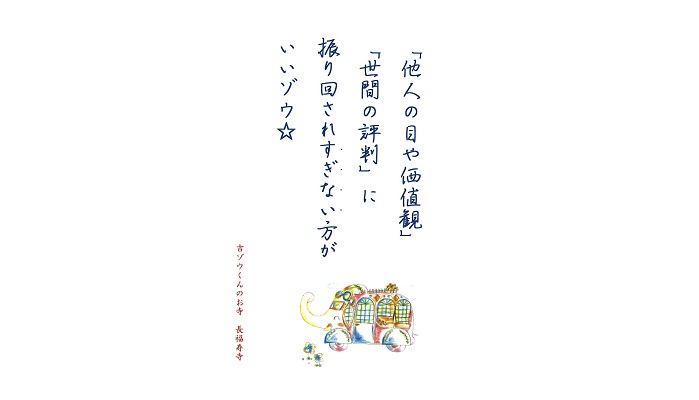 「他人の目や価値観」
「世間の評判」に
振り回されすぎない方が
いいゾウ☆
吉ゾウくんのお寺　長福寿寺